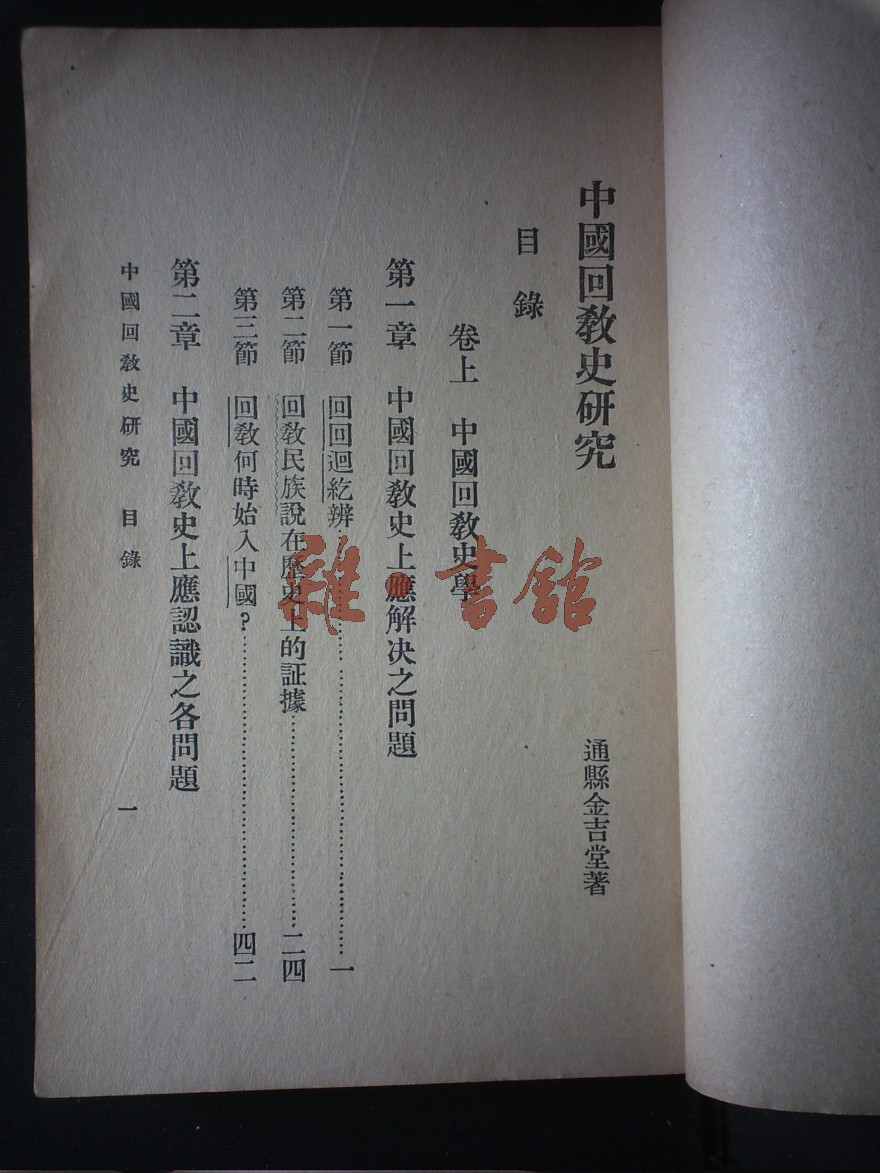 中國回教史研究
通縣金吉堂著
目錄
卷上　中國回教史學
第一章　中國回教史上應解决之問題
第一節　回回迴紇辨……………………………一
第二節　回教民族說在歷史上的証據……………………二四
第三節　回教何時始入中國？……………………………四二
第二章　中國回教史上應認識之各問題
中國回教史研究　目錄　一
雜·書館